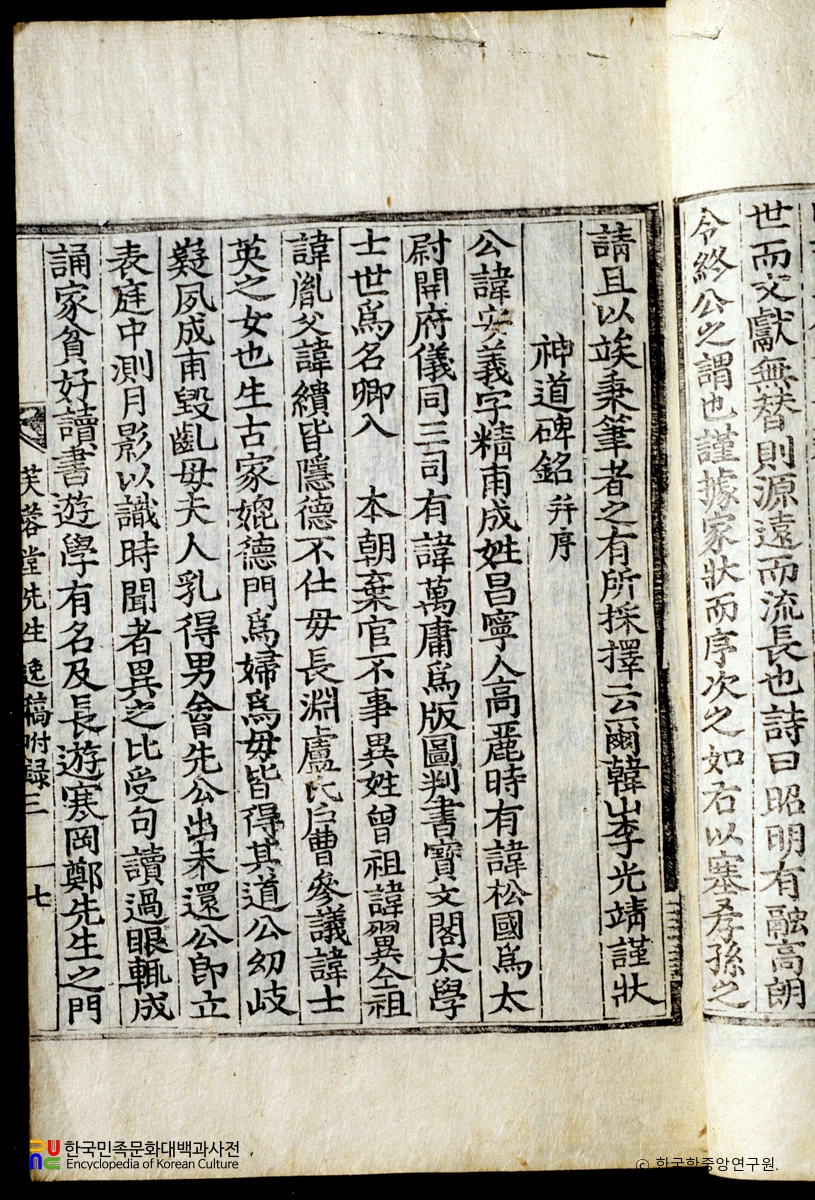 世而文獻無替則源遠而流長也詩曰昭明有融高朗
令終公之謂也謹據家狀而序次之如右以塞孝孫之
請且以竢秉筆者之有所採擇云爾韓山李光靖謹狀
神道碑銘 幷序
公諱安義字精甫成姓昌寧人高麗時有諱松國爲太
尉開府儀同三司有諱萬庸爲版圖判書寶文閣太學
士世爲名卿入 本朝棄官不事異姓曾祖諱翼仝祖
諱胤父諱繢皆隱德不仕母長淵盧氏戶曹參議諱士
英之女也生古家媲德門爲婦爲母皆得其道公幼岐
嶷夙成甫毀齓母夫人乳得男會先公出未還公卽立
表庭中測月影以識時聞者異之比受句讀過眼輒成
誦家貧好讀書遊學有名及長遊寒岡鄭先生之門
芙蓉堂先生逸稿附錄三 十七
한국민족문화대백과사전
Encyclopedia of Korean Culture
© 한국학중앙연구원.